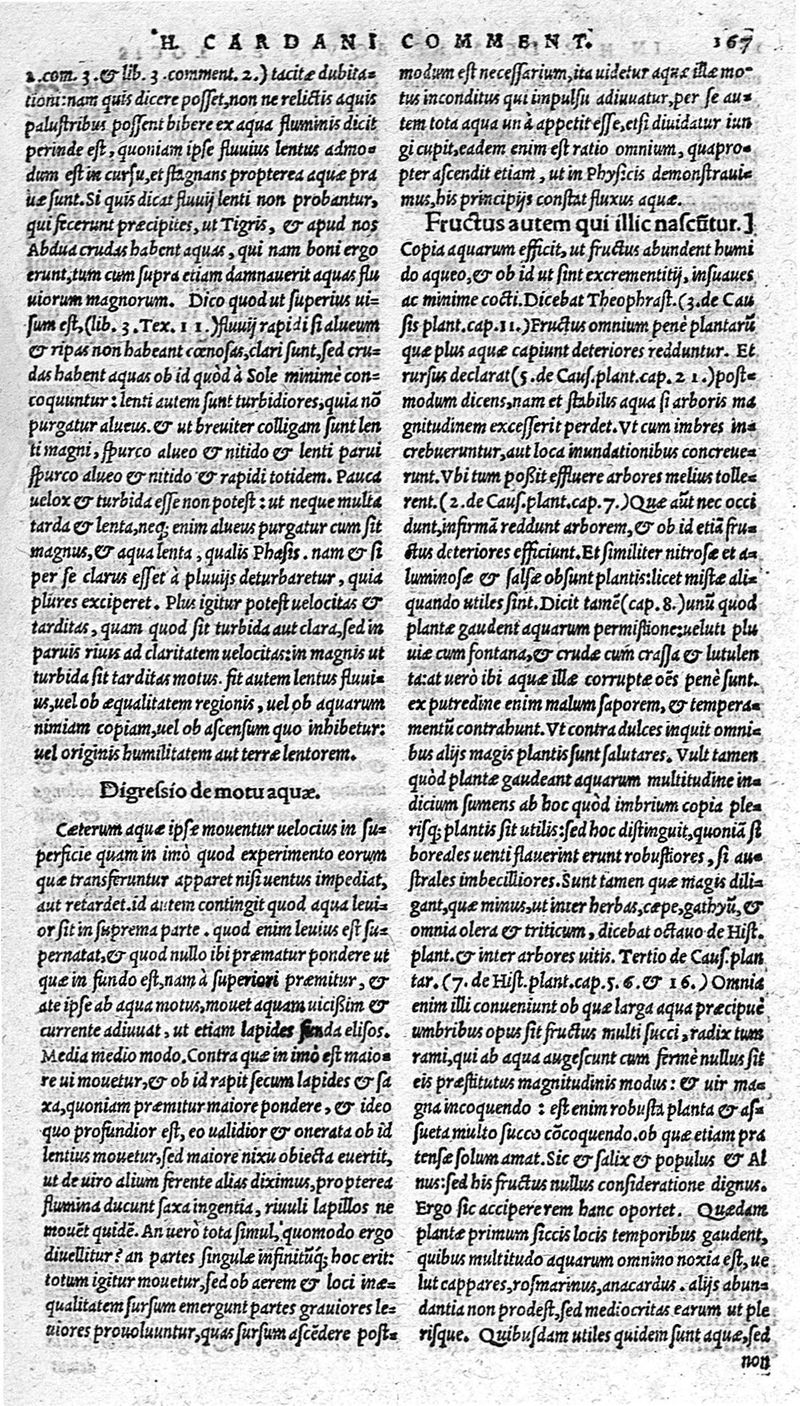 H. CARDANI COMMENT. 167
2.com. 3. & lib. 3 .comment. 2.) tacitæ dubita=
tioni: nam quis dicere posset, non ne relictis aquis
palustribus possent bibere ex aqua fluminis dicit
perinde est, quoniam ipse fluuius lentus admo=
dum est in cursu, et stagnans propterea aquæ pra
uæ sunt. Si quis dicat fluuij lenti non probantur,
qui fecerunt præcipites, ut Tigris, & apud nos
Abdua crudas habent aquas, qui nam boni ergo
erunt, tum cum supra etiam damnauerit aquas flu
uiorum magnorum. Dico quod ut superius ui=
sum est, (lib. 3. Tex. 11.) fluuij rapidi si alueum
& ripas non habeant cœnosas, clari sunt, sed cru=
das habent aquas ob id quòd à Sole minimè con=
coquuntur: lenti autem sunt turbidiores, quia nō
purgatur alueus. & ut breuiter colligam sunt len
ti magni, spurco alueo & nitido & lenti parui
spurco alueo & nitido & rapidi totidem. Pauca
uelox & turbida esse non potest: ut neque multa
tarda & lenta, neq; enim alueus purgatur cum sit
magnus, & aqua lenta, qualis Phasis. nam & si
per se clarus esset à pluuijs deturbaretur, quia
plures exciperet. Plus igitur potest uelocitas &
tarditas, quam quod sit turbida aut clara, sed in
paruis riuis ad claritatem uelocitas: in magnis ut
turbida sit tarditas motus. fit autem lentus fluui=
us, uel ob æqualitatem regionis, uel ob aquarum
nimiam copiam, uel ob ascensum quo inhibetur:
uel originis humilitatem aut terræ lentorem.
Digressio de motu aquæ.
Cæterum aquæ ipsæ mouentur uelocius in su=
perficie quam in imò quod experimento eorum
quæ transferuntur apparet nisi uentus impediat,
aut retardet. id autem contingit quod aqua leui=
or sit in suprema parte. quod enim leuius est su=
pernatat, & quod nullo ibi præmatur pondere ut
quæ in fundo est, nam à superiori præmitur, &
ate ipse ab aqua motus, mouet aquam uicißim &
currente adiuuat, ut etiam lapides funda elisos.
Media medio modo. Contra quæ in imò est maio=
re ui mouetur, & ob id rapit secum lapides & sa
xa, quoniam præmitur maiore pondere, & ideo
quo profundior est, eo ualidior & onerata ob id
lentius mouetur, sed maiore nixu obiecta euertit,
ut de uiro alium ferente alias diximus, propterea
flumina ducunt saxa ingentia, riuuli lapillos ne
mouēt quidē. An uerò tota simul, quomodo ergo
diuellitur? an partes singulæ infinitūq; hoc erit:
totum igitur mouetur, sed ob aerem & loci inæ=
qualitatem sursum emergunt partes grauiores le=
uiores prouoluuntur, quas sursum ascēdere post=
modum est necessarium, ita uidetur aquæ illæ mo=
tus inconditus qui impulsu adiuuatur, per se au=
tem tota aqua unà appetit esse, etsi diuidatur iun
gi cupit, eadem enim est ratio omnium, quapro=
pter ascendit etiam, ut in Physicis demonstraui=
mus, his principijs constat fluxus aquæ.
Fructus autem qui illic nascūtur.]
Copia aquarum efficit, ut fructus abundent humi
do aqueo, & ob id ut sint excrementitij, insuaues
ac minime cocti. Dicebat Theophrast. (3. de Cau
sis plant. cap. 11.) Fructus omnium penè plantarū
quæ plus aquæ capiunt deteriores redduntur. Et
rursus declarat (5. de Caus. plant. cap. 21.) post=
modum dicens, nam et stabilus aqua si arboris ma
gnitudinem excesserit perdet. Vt cum imbres in=
crebueruntur, aut loca inundationibus concreue=
runt. Vbi tum poßit effluere arbores melius tolle=
rent. (2. de Caus. plant. cap. 7.) Quæ aūt nec occi
dunt, infirmā reddunt arborem, & ob id etiā fru=
ctus deteriores efficiunt. Et similiter nitrosæ et a=
luminosæ & salsæ obsunt plantis: licet mistæ ali=
quando utiles sint. Dicit tamē (cap. 8.) unū quod
plantæ gaudent aquarum permistione: ueluti plu
uiæ cum fontana, & crudæ cum crassa & lutulen
ta: at uerò ibi aquæ illæ corruptæ oēs penè sunt.
ex putredine enim malum saporem, & tempera=
mentū contrahunt. Vt contra dulces inquit omni=
bus alijs magis plantis sunt salutares. Vult tamen
quòd plantæ gaudeant aquarum multitudine in=
dicium sumens ab hoc quòd imbrium copia ple=
risq; plantis sit utilis: sed hoc distinguit, quoniā si
boreales uenti flauerint erunt robustiores, si au=
strales imbecilliores. Sunt tamen quæ magis dili=
gant, quæ minus, ut inter herbas, cæpe, gathyū, &
omnia olera & triticum, dicebat octauo de Hist.
plant. & inter arbores uitis. Tertio de Caus. plan
tar. (7. de Hist. plant. cap. 5. 6. & 16.) Omnia
enim illi conueniunt ob quæ larga aqua præcipuè
umbribus opus sit fructus multi succi, radix tum
rami, qui ab aqua augescunt cum fermè nullus sit
eis præstitutus magnitudinis modus: & uir ma=
gna incoquendo: est enim robusta planta & as=
sueta multo succo cōcoquendo. ob quæ etiam pra
tensæ solum amat. Sic & salix & populus & Al
nus: sed his fructus nullus consideratione dignus.
Ergo sic accipere rem hanc oportet. Quædam
plantæ primum siccis locis temporibus gaudent,
quibus multitudo aquarum omnino noxia est, ue
lut cappares, rosmarinus, anacardus. alijs abun=
dantia non prodest, sed mediocritas earum ut ple
risque. Quibusdam utiles quidem sunt aquæ, sed
non